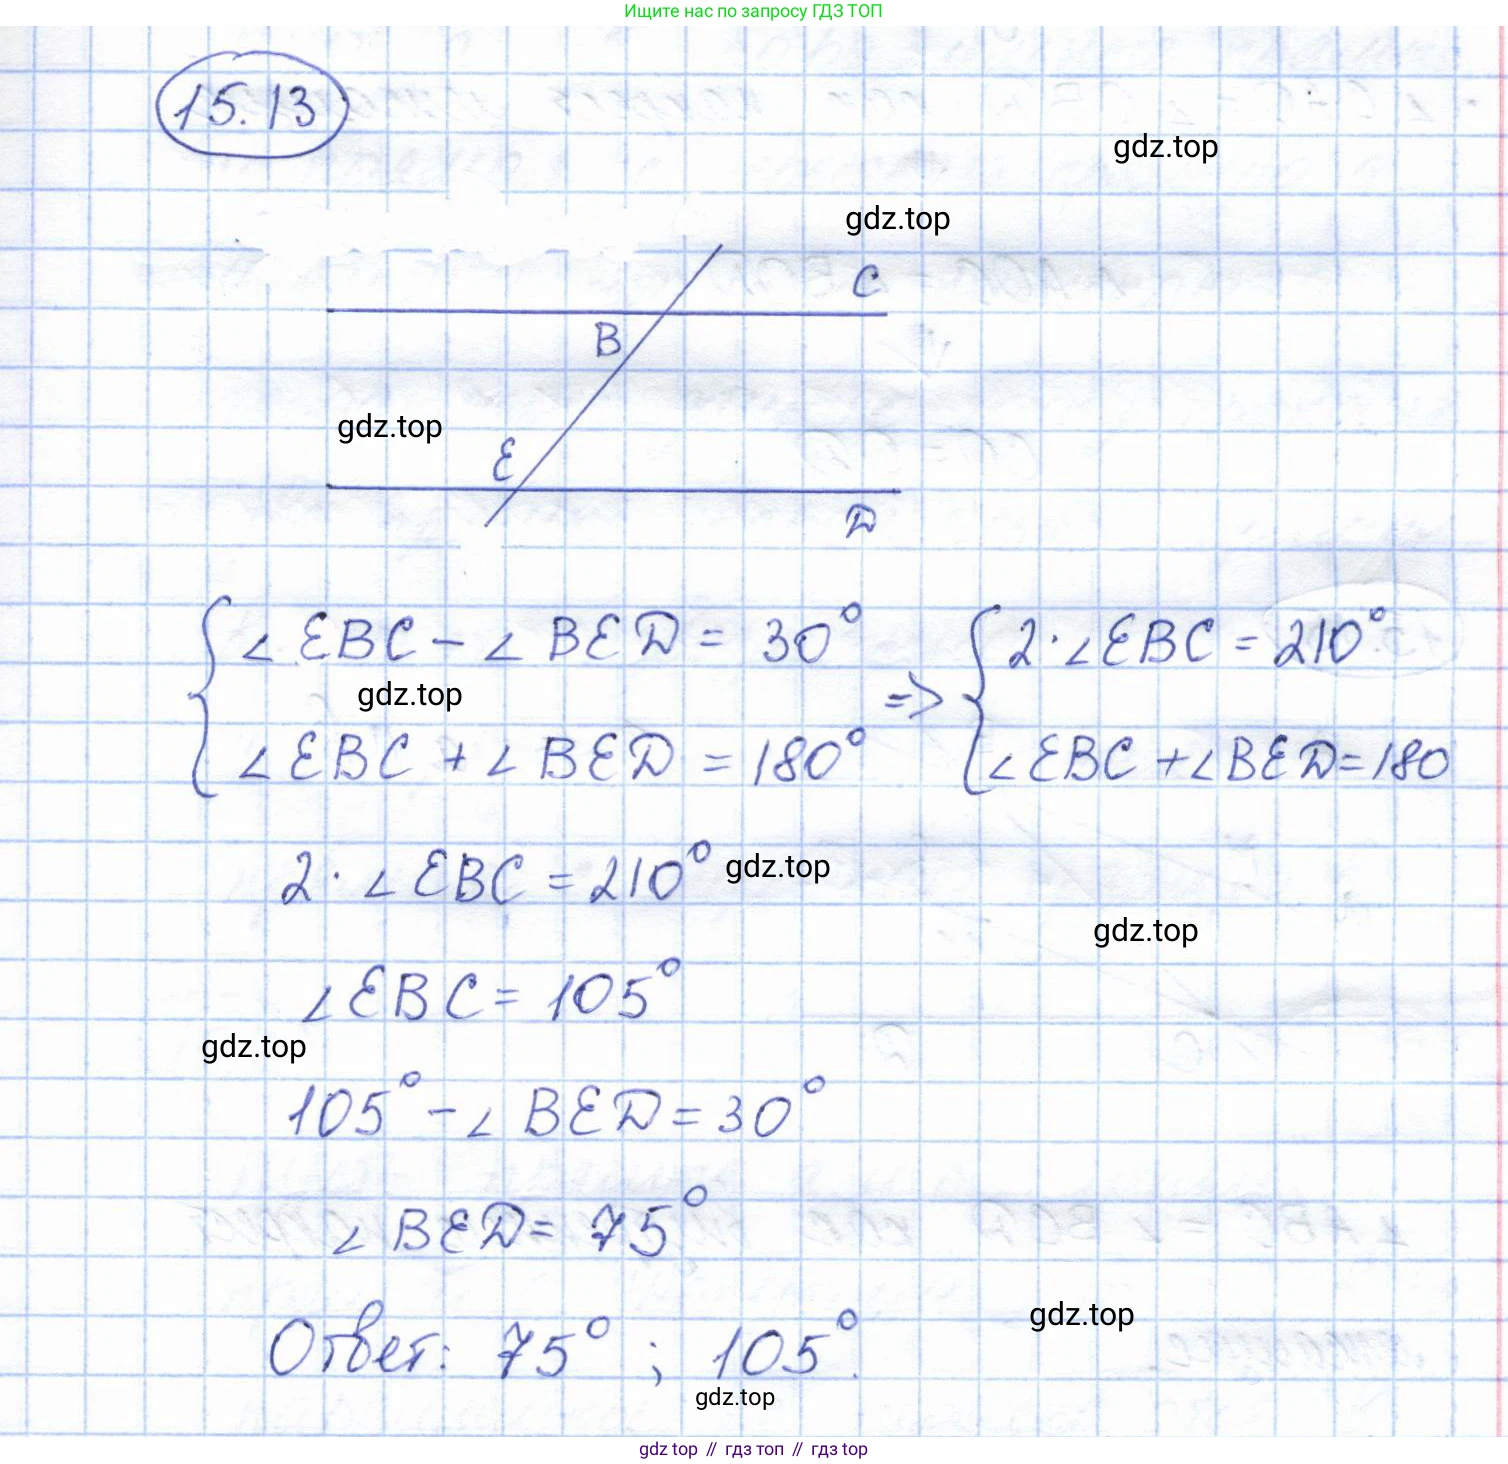 Ищите нас по запросу ГДЗ ТОП
15.13
gdz.top
gdz.top
C
B
gdz.top
E
D
{ ∠EBC - ∠BED = 30° => { 2·∠EBC = 210°
gdz.top
∠EBC + ∠BED = 180° ∠EBC + ∠BED = 180
2·∠EBC = 210°
gdz.top
gdz.top
∠EBC = 105°
gdz.top
105° - ∠BED = 30°
∠BED = 75°
gdz.top
Ответ: 75° ; 105°.
gdz.top
gdz top // гдз топ // гдз top